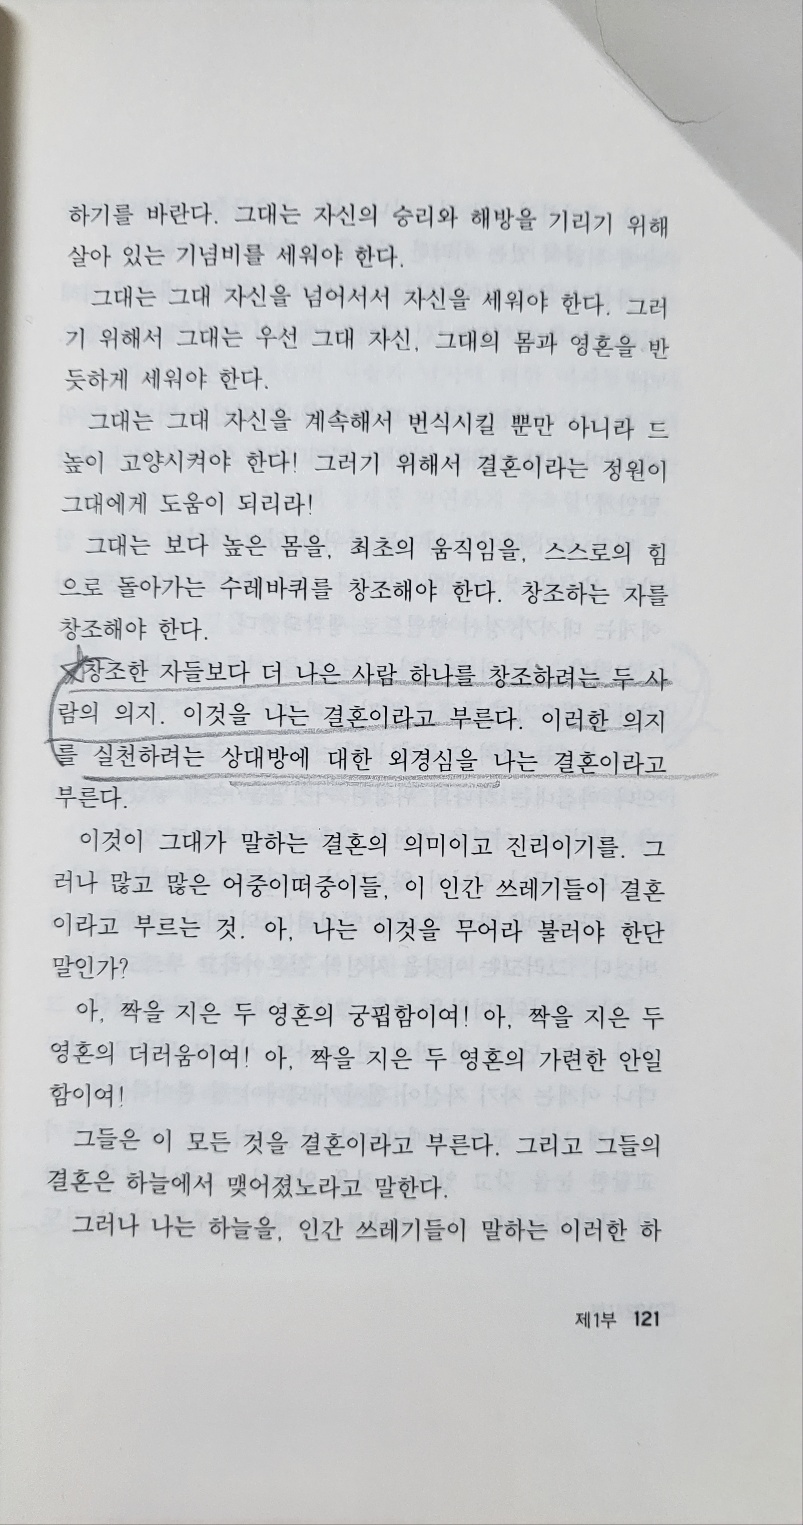 하기를 바란다. 그대는 자신의 승리와 해방을 기리기 위해
살아 있는 기념비를 세워야 한다.
그대는 그대 자신을 넘어서서 자신을 세워야 한다. 그러
기 위해서 그대는 우선 그대 자신, 그대의 몸과 영혼을 반
듯하게 세워야 한다.
그대는 그대 자신을 계속해서 번식시킬 뿐만 아니라 드
높이 고양시켜야 한다! 그러기 위해서 결혼이라는 정원이
그대에게 도움이 되리라!
그대는 보다 높은 몸을, 최초의 움직임을, 스스로의 힘
으로 돌아가는 수레바퀴를 창조해야 한다. 창조하는 자를
창조해야 한다.
창조한 자들보다 더 나은 사람 하나를 창조하려는 두 사
람의 의지. 이것을 나는 결혼이라고 부른다. 이러한 의지
를 실천하려는 상대방에 대한 외경심을 나는 결혼이라고
부른다.
이것이 그대가 말하는 결혼의 의미이고 진리이기를. 그
러나 많고 많은 어중이떠중이들, 이 인간 쓰레기들이 결혼
이라고 부르는 것. 아, 나는 이것을 무어라 불러야 한단
말인가?
아, 짝을 지은 두 영혼의 궁핍함이여! 아, 짝을 지은 두
영혼의 더러움이여! 아, 짝을 지은 두 영혼의 가련한 안일
함이여!
그들은 이 모든 것을 결혼이라고 부른다. 그리고 그들의
결혼은 하늘에서 맺어졌노라고 말한다.
그러나 나는 하늘을, 인간 쓰레기들이 말하는 이러한 하
제1부 121